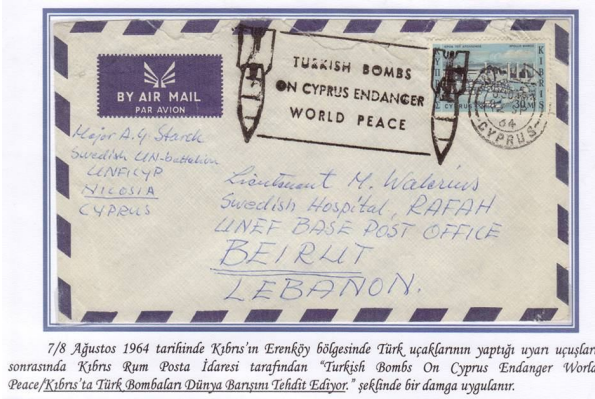 BY AIR MAIL
PAR AVION
TURKISH BOMBS
ON CYPRUS ENDANGER
WORLD PEACE
KIBRIS
30 M
64
CYPRUS
Major A.G. Starck
Swedish UN-battalion
UNFICYP
NICOSIA
CYPRUS
Lieutenant M. Walerius
Swedish Hospital, RAFAH
UNEF BASE POST OFFICE
BEIRUT
LEBANON.
7/8 Ağustos 1964 tarihinde Kıbrıs'ın Erenköy bölgesinde Türk uçaklarının yaptığı uyarı uçuşları
sonrasında Kıbrıs Rum Posta İdaresi tarafından "Turkish Bombs On Cyprus Endanger World
Peace/Kıbrıs'ta Türk Bombaları Dünya Barışını Tehdit Ediyor." şeklinde bir damga uygulanır.